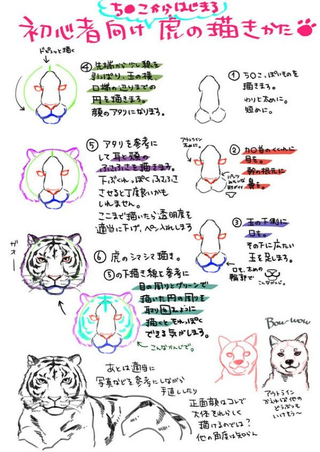 ち○こからはじまる
初心者向け 虎の描きかた
ドバっと描く
④先端から少し線を
引っぱり、玉の横、
口端の辺りまでの
円を描きます。
顔のアタリになります。
① ち○こ、ぽいものを
描きます。
わりと太めに。
短めに。
⑤ アタリを参考に
して耳と頬の
ふさふさを描きます。
下ぶくれっぽくふさふさ
させると丁度良いかも
しれません。
ここまで描いたら透明度を
適当に下げ、ペン入れします
アウトライン
太めに
② カリ首のくびれに
目を。
幹の根元に
鼻を。
③ 玉の下側に
口を。
その下に広たい
玉を足します。
ガオー
⑥ 虎のシマシマ描き。
⑤の下描き線を参考に
目の周りとグリーンで
描いた円の周りを
取り囲むように
描くとそれっぽく
できる気がします。
こんなかんじで。
あとは適当に
写真などを参考にしながら
手直ししたり
正面顔はコレで
大体それらしく
描けるのでは?
他の角度は知らん
Bow-wow
アウトライン
かえれば他の
どうぶつも
いけそう〜